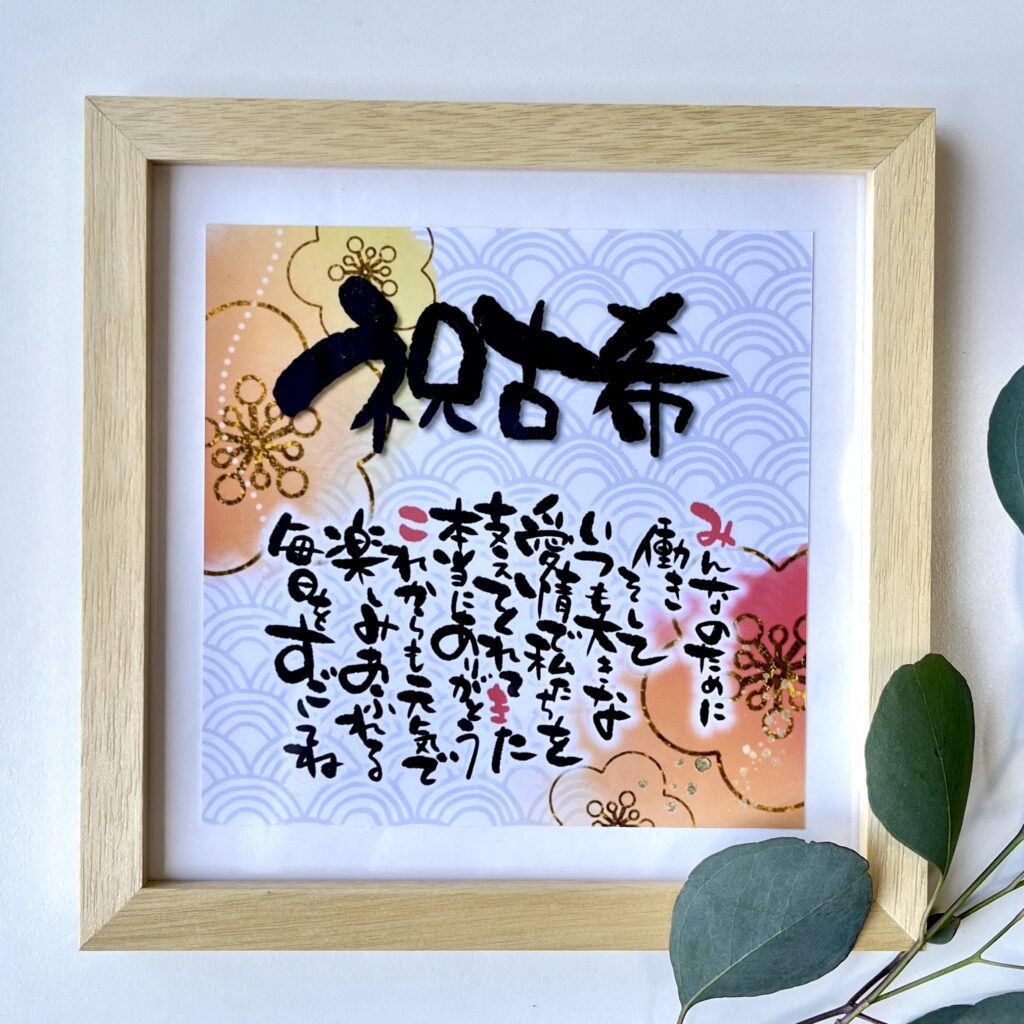 祝古希
みんなのために
働き
そして
いつも大きな
愛情で私たちを
支えてくれてきた
本当にありがとう
これからも元気で
楽しみあふれる
毎日を
すごしてね